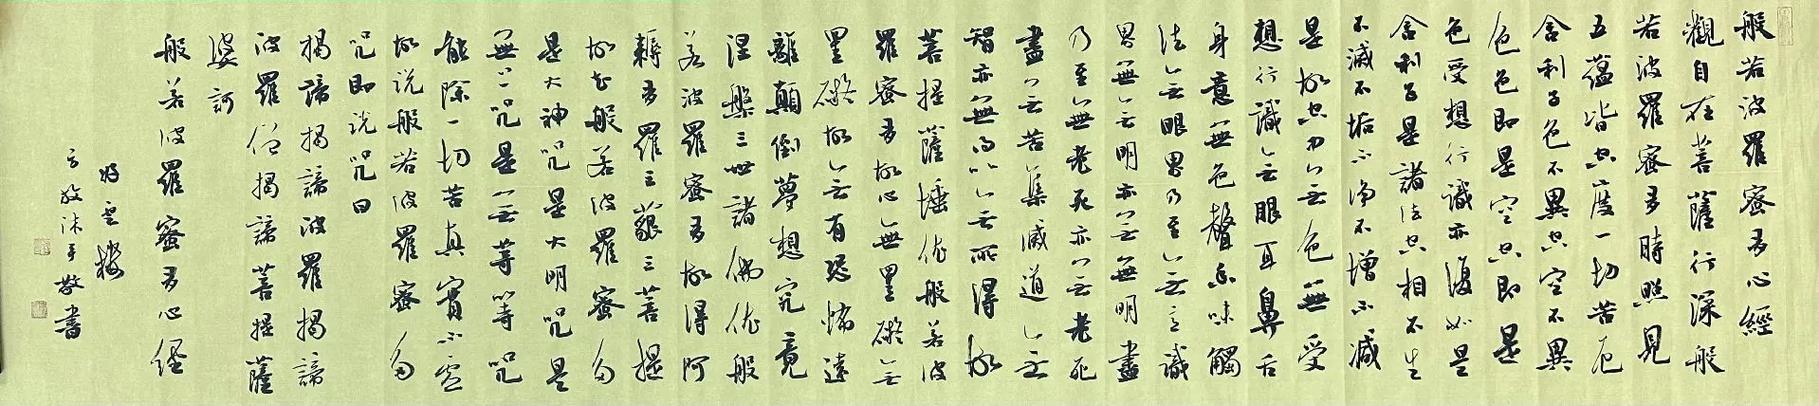 般若波羅蜜多心經
觀自在菩薩行深般
若波羅蜜多時照見
五蘊皆空度一切苦厄
舍利子色不異空空不異
色色即是空空即是
色受想行識亦復如是
舍利子是諸法空相不生
不滅不垢不淨不增不減
是故空中無色無受
想行識無眼耳鼻舌
身意無色聲香味觸
法無眼界乃至無意識
界無無明亦無無明盡
乃至無老死亦無老死
盡無苦集滅道無
智亦無得以無所得故
菩提薩埵依般若波
羅蜜多故心無罣礙無
罣礙故無有恐怖遠
離顛倒夢想究竟
涅槃三世諸佛依般
若波羅蜜多故得阿
耨多羅三藐三菩提
故知般若波羅蜜多
是大神咒是大明咒是
無上咒是無等等咒
能除一切苦真實不虛
故說般若波羅蜜多
咒即說咒曰
揭諦揭諦波羅揭諦
波羅僧揭諦菩提薩
婆訶
般若波羅蜜多心経
沐手敬書